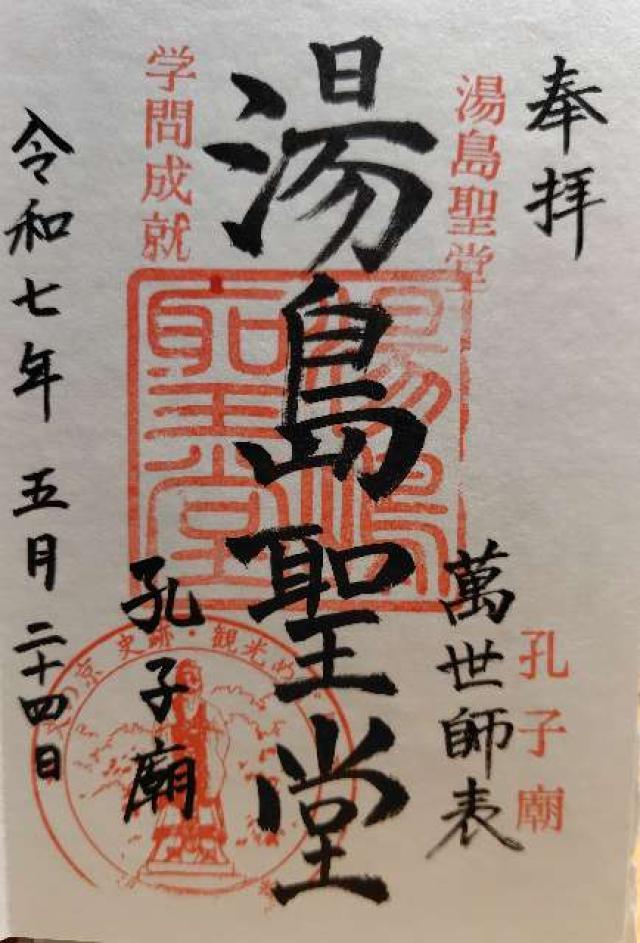 奉拝
湯島聖堂
孔子廟
萬世師表
湯島聖堂
湯島聖堂
学問成就
孔子廟
史跡・観光
令和七年 五月二十四日